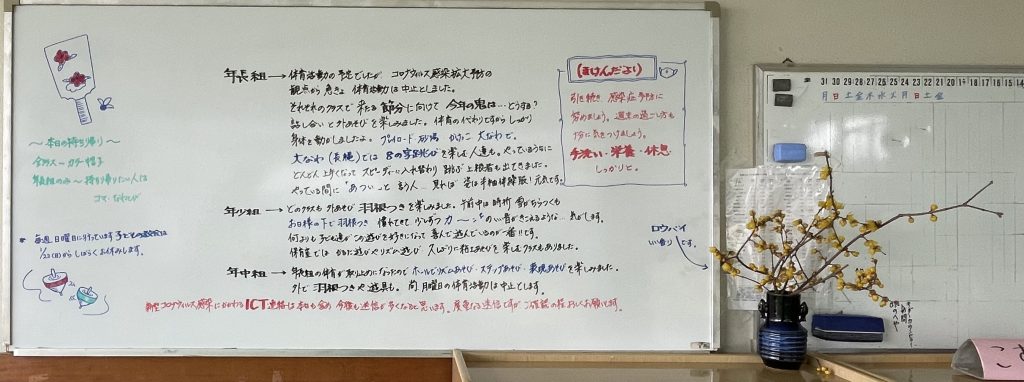 ～本日の持ち帰り～
全員スモック・カラー帽子
年長組のみ～持ち帰りたい人は
コマ・なわとび
毎週日曜日に行っています子どもの遊び会は
1/23(日)からしばらくお休みします。
年長組→体育活動の予定でしたが コロナウィルス感染拡大予防の
観点から急きょ 体育活動は中止としました。
それぞれのクラスで 来たる節分に向けて 今年の鬼は…どうする?
話し合いと外あそびを楽しみました。体育の代わりですから しっかり
身体を動かしましたよ。プレイロード 砂場 かけっこ 大なわで。
大なわ(長縄)では 8の字跳びを楽しむ人達も。やっているうちに
どんどん上手くなって スピーディーに入れ替わり 跳ぶ上級者も出てきました。
やっている間に "あつい"っと言う人… 見れば 姿は半袖体操服!元気です。
年少組→どのクラスも 外あそび 羽根つきを楽しみました。午前中は時折 雪がちらつくも
お日様の下で 羽根つき 慣れてきて 少しずつカ～ン♪のいい音がきこえるような… 気がします。
何よりも 子ども達がこの遊びを好きになって 喜んで遊んでいるのが一番!!です。
保育室では かるた遊びやリズム遊び 久しぶりに粘土あそびを 楽しむクラスもありました。
年中組→年長組の体育が取り止めになったので ホールでリズムあそび・スキップあそび・表現あそびを楽しみました。
外で羽根つきや遊具も。 尚 月曜日の体育活動は中止とします。
新型コロナウィルス感染にかかわるICT連絡は 本日も含め 今後も送信が多くなると思います。度重なる送信ですが ご確認の程 よろしくお願いします。
(ほけんだより)
引き続き 感染症予防に
努めましょう。週末の過ごし方も
十分に気をつけましょう。
手洗い・栄養・休息
しっかりと。
ロウバイ
いい香りです。
31 30 29 28 27 26 25 24 23 22 21 20 19 18 17 16 15 14
月 日 土 金 木 水 火 月 日 土 金